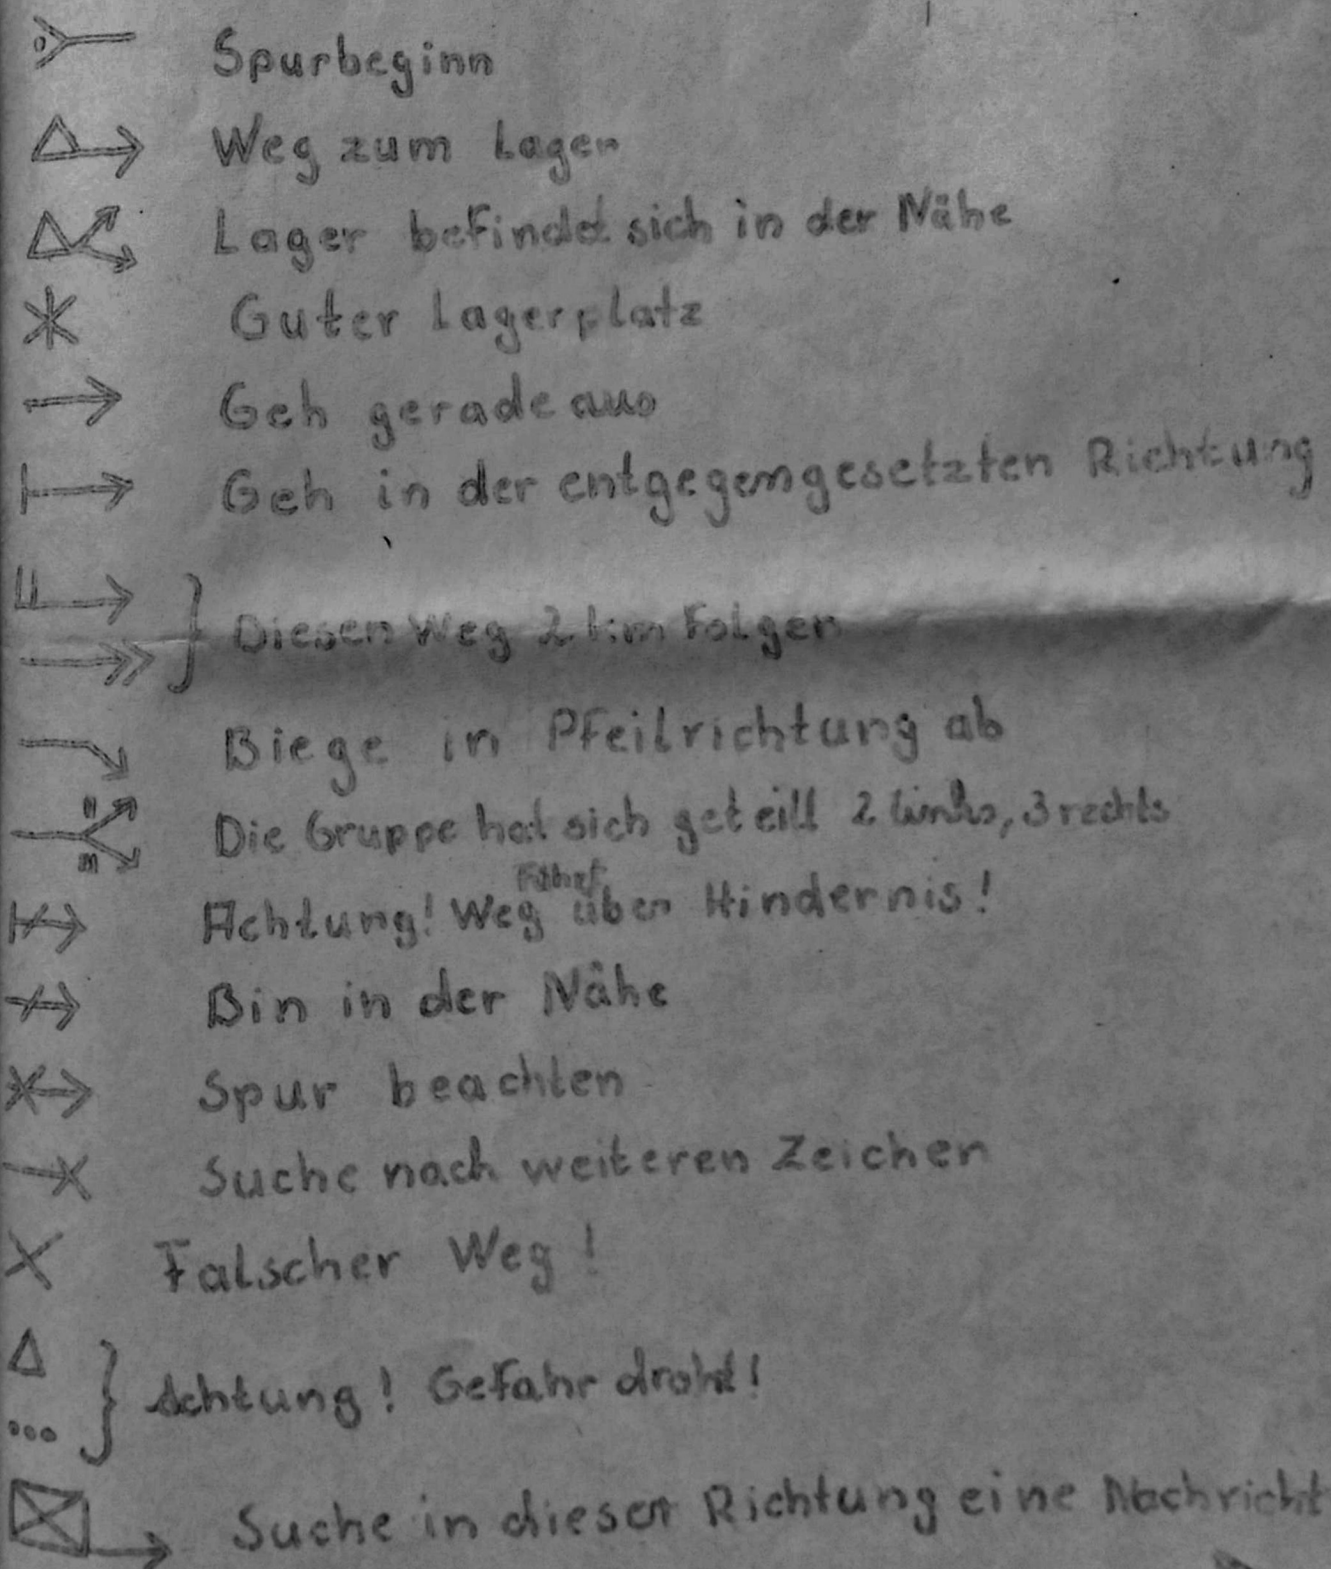 Spurbeginn
Weg zum Lager
Lager befindet sich in der Nähe
Guter Lagerplatz
Geh geradeaus
Geh in der entgegengesetzten Richtung
Diesen Weg 2 km folgen
Biege in Pfeilrichtung ab
Die Gruppe hat sich geteilt 2 links, 3 rechts
Achtung! Weg führt über Hindernis!
Bin in der Nähe
Spur beachten
Suche nach weiteren Zeichen
Falscher Weg!
Achtung! Gefahr droht!
Suche in dieser Richtung eine Nachricht